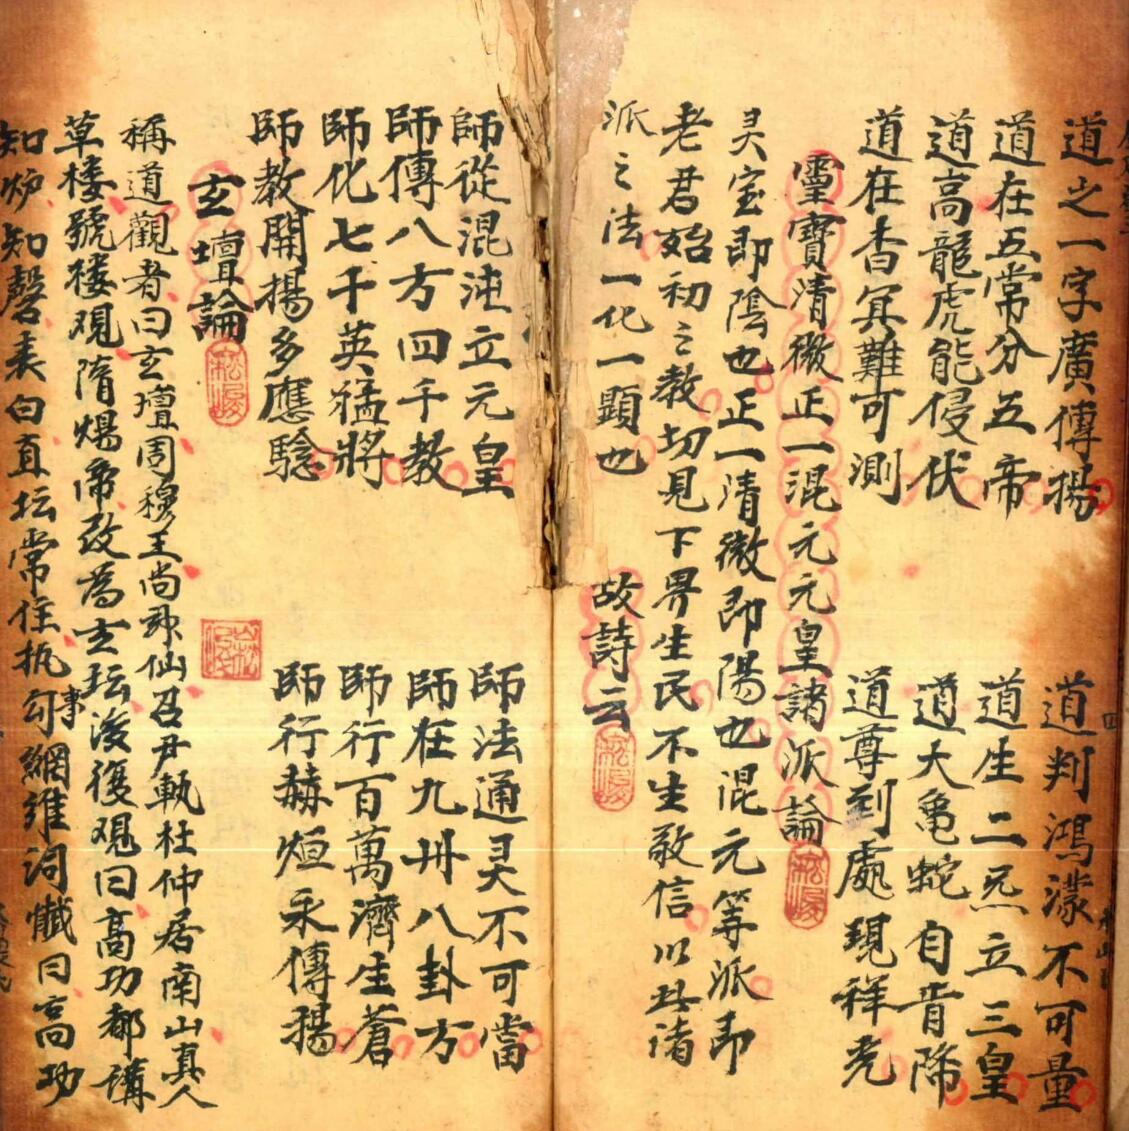 道之一字廣傳揚　道判鴻濛不可量
道在五常分五帝　道生二炁立三皇
道高龍虎能侵伏　道大亀蛇自皆降
道在杳冥難可測　道尊到處現祥光
靈寶清微正一混元元皇諸派論
灵宝即陰也正一清微即陽也混元等派即
老君始初之教切見下界生民不生敬信以此諸
派之法一化一顕也　故詩云
師從混沌立元皇　師法通灵不可當
師傳八方四千教　師在九卅八卦方
師化七千英猛將　師行百萬濟生蒼
師教開揚多應驗　師行赫烜永傳揚
玄壇論
稱道觀者曰玄壇周穆王尚神仙召尹軌杜仲居南山真人
草楼號楼观隋煬帝改為玄坛後復观曰高功都講
知炉知磬表白直坛常住执事勾網维词懺曰高功